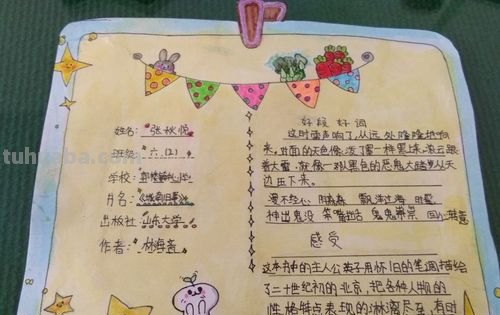 姓名：张秋悦
班级：六.(2)
学校：
书名：《城南旧事》
出版社：山东大学
作者：林海音
好段 好词
这时雷声响了，从远处隆隆地响
来，对面的天色像泼了墨一样黑
着大雷，就像一群黑色的恶鬼大踏步从天
边压下来。
漫不经心 飘洋过海
神出鬼没 鬼鬼祟祟
感受
这本书中的主人公英子用怀旧的笔调描绘
了二十世纪初的北京，把各种人物的
性格特点表现的淋漓尽至，有时